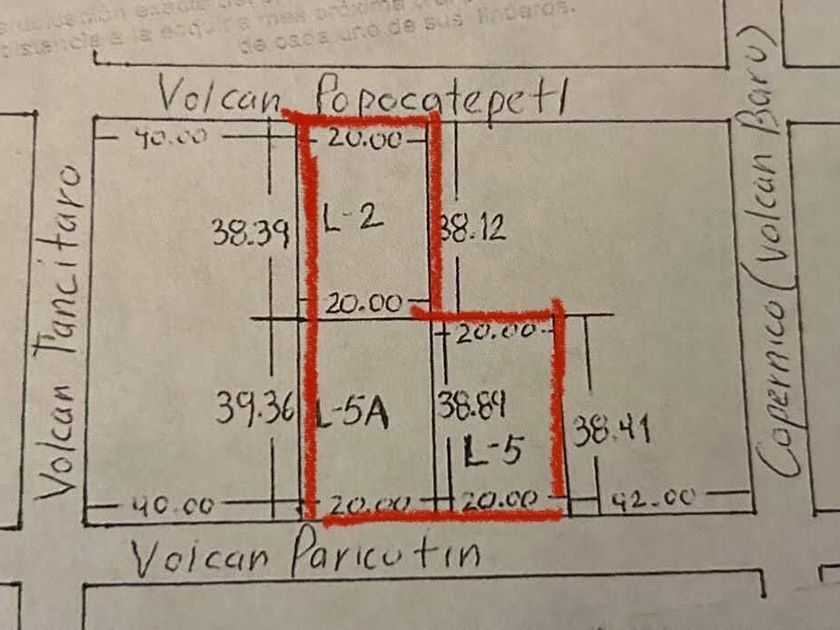 ubicación exacta
distancia a la esquina mas próxima
de cada uno de sus linderos.
Volcan Popocatepetl
40.00
20.00
Volcan Tancitaro
Copernico (Volcan Baru)
38.39
L-2
38.12
20.00
20.00
39.36
L-5A
38.89
L-5
38.41
40.00
20.00
20.00
42.00
Volcan Paricutin